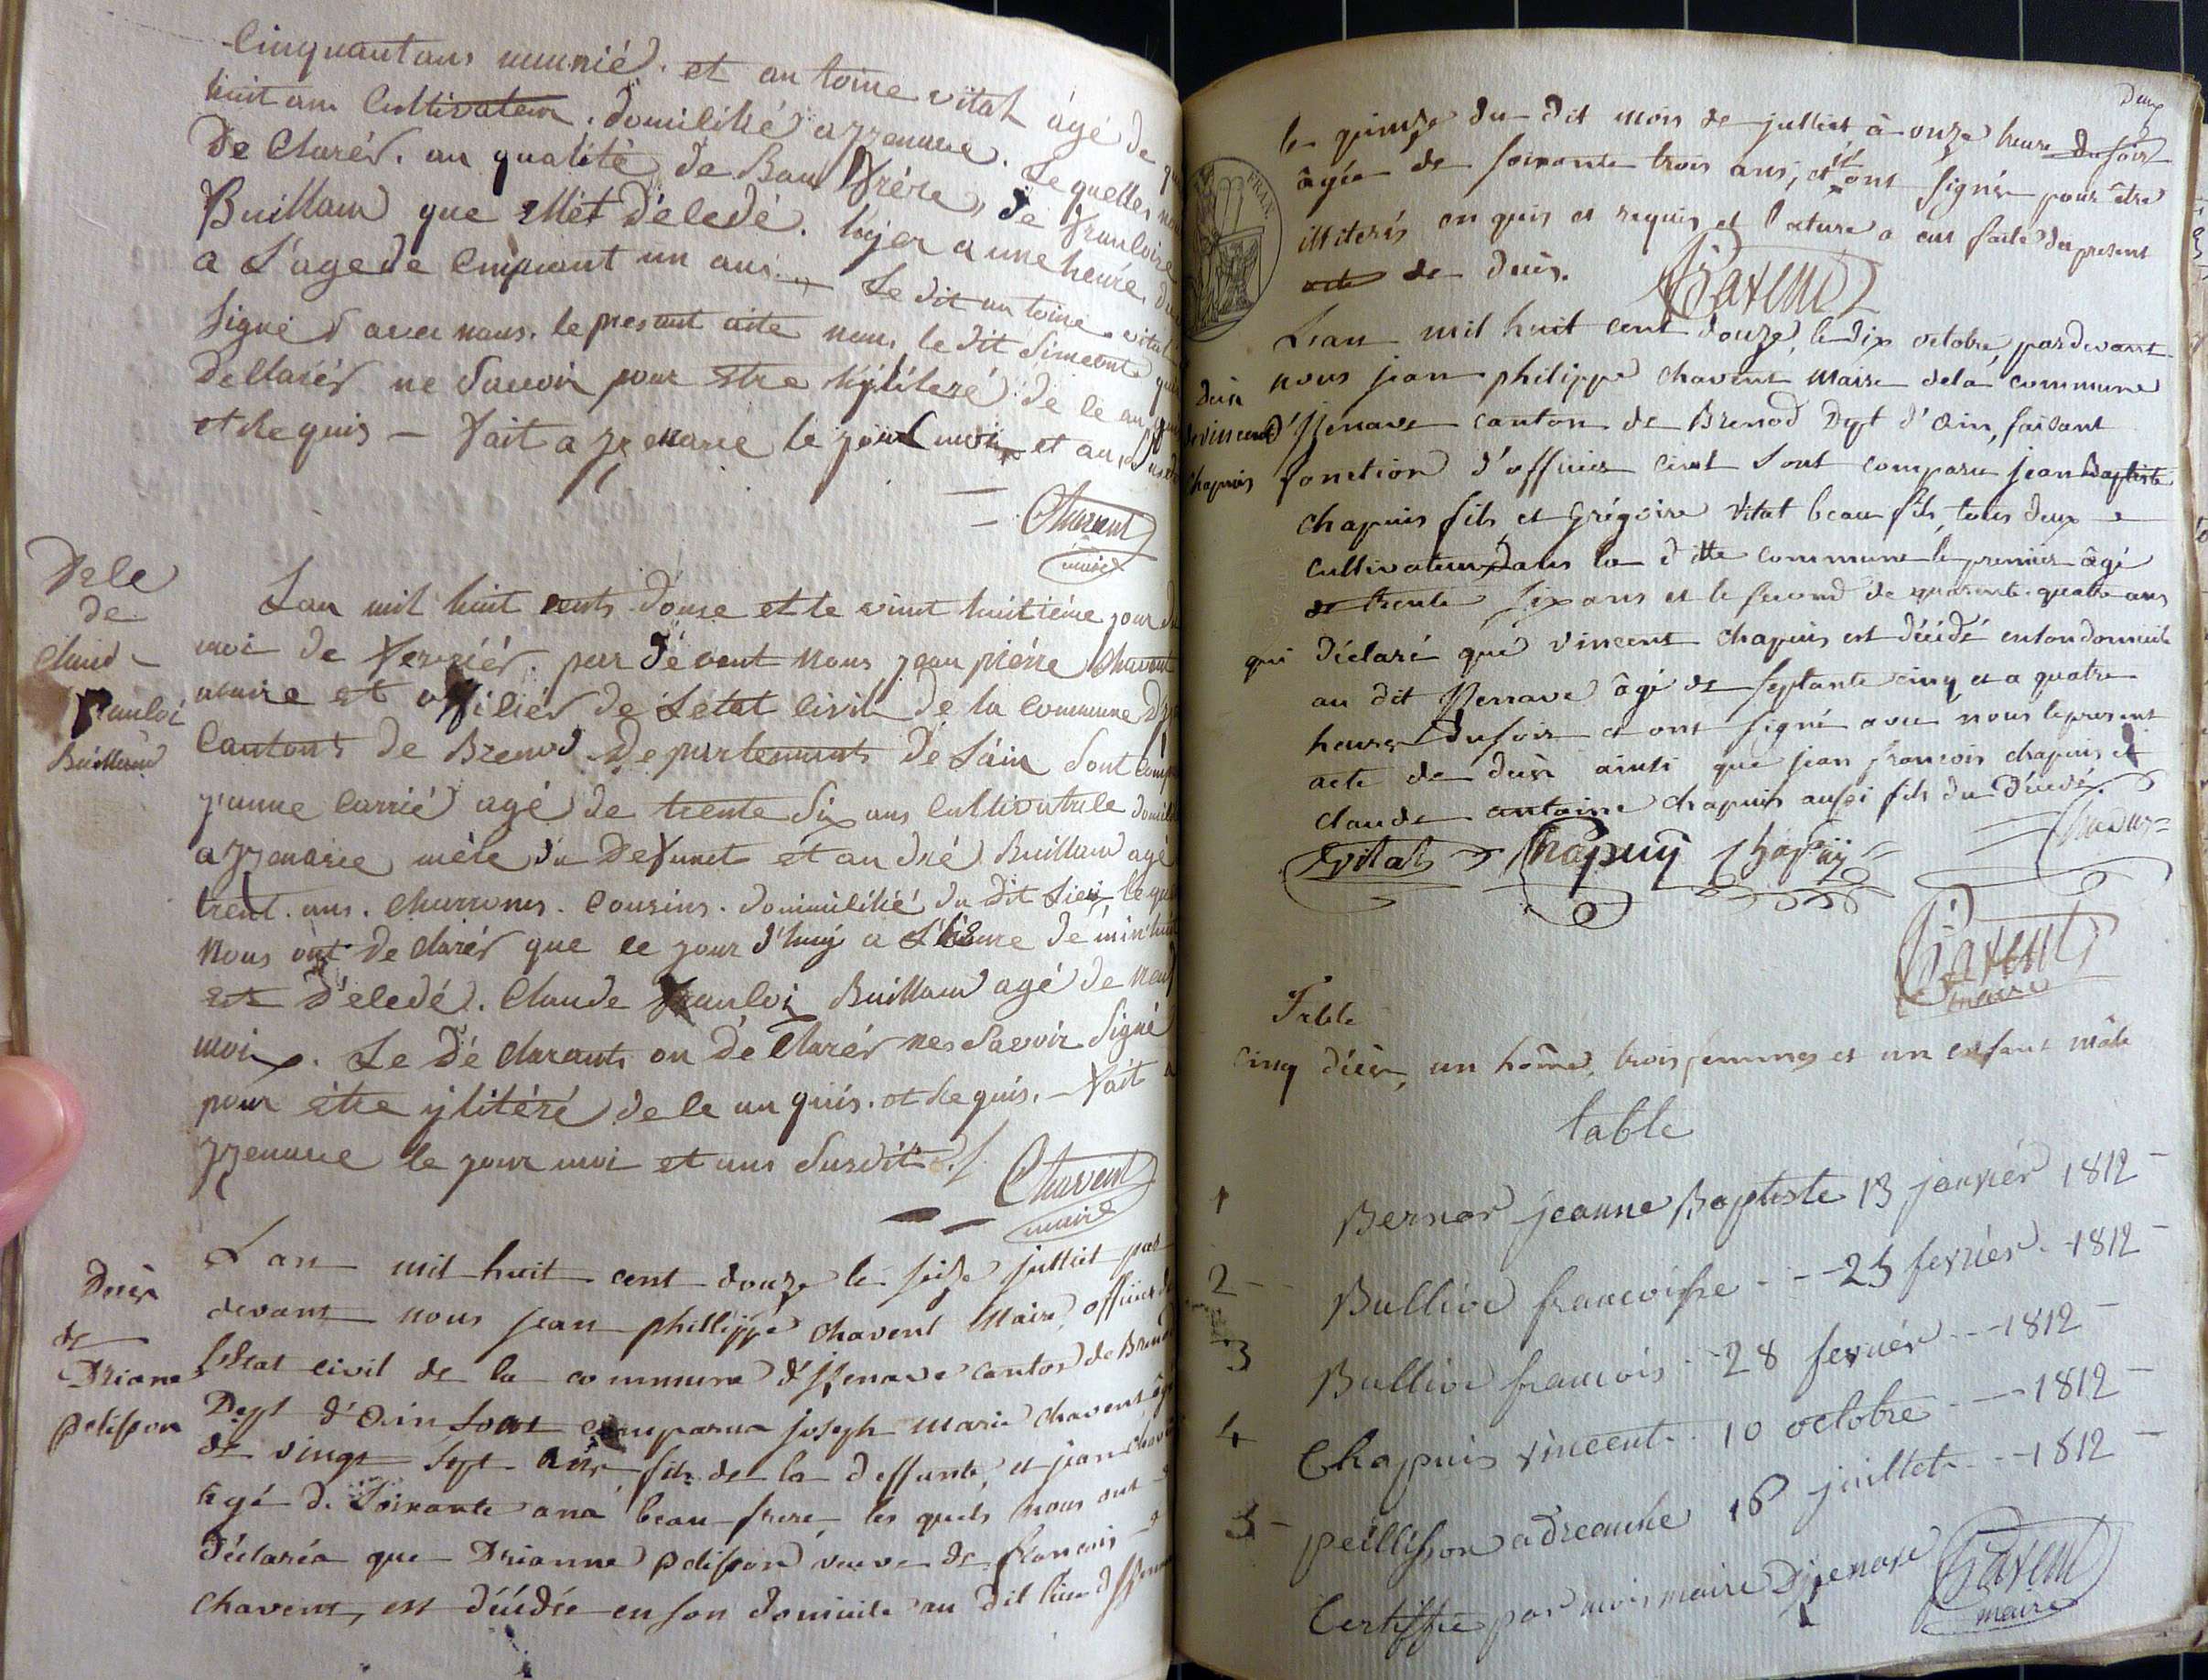 Cinquant ans munié. et an toine vital âgé de
huit ans Cultivateur. domilihé a yzenave. Lequelles
De Clarér. an qualité de Bau frére, de franloise
Buillaud que ellét déledé. hyer a une heure
a L'age de Cinquant un ans. Le dit an toine vital
Signé avec nous. le presant acte nous le dit
Dellarér ne Savoir pour être
et Requis — fait a yzenave le jour mois et an Susdit
Chavent
maire
Dele
de
Claud
franloi
Buillaud
Lan mil huit cents douse et le vint huitiéme jour du
moi de fevriér. par dévent nous jean piérre Chavent
maire et offiliér de Létat Civil de la Commune
Cantons de Brenod Departements de Lain Sont
janne Carrié agé de trente Six ans Cultivatrile
a yzenave mére du Defunct et an dré Buillaud agé
trent. ans. Charrons. Cousins. domiliihé du dit Lieu, le
Nous ont De clarér que le jour d'huy a L'heure de
est D'eledé. Claude franloi Buillaud agé de neuf
moix. Le Dé clarants on Dé Clarér nes Savoir Signé
pour étre ylitéré de le an quis. et Requis. – fait a
yzenave le jour moi et ans Susdit
Chavent
maire
Decès
de
Driane
pelisson
L'an mil huit cent douze le seize juillet par
devant nous jean phillippe chavent Maire officier de
l'Etat civil de la commune d'Izenave canton de Brenod
Dept d'Ain Sont comparu joseph marie chavent
de vingt Sept ans fils de la deffunte, et jean
agé de Soixante ans beau-frere, les quels nous ont
déclaréa que Drianne pelisson veuve de françois
chavent, est décédée en son domicile au dit lieu
Deux
le quinze du dit mois de julliet à onze heure du soir
âgée de soixante trois ans, et ont signée pour être
illiterés en quis et requis et l'cture a eut faite du present
acte de decès.
Chavent
L'an mil huit cent douze, le dix octobre, pardevant
nous jean philippe chavent maire de la commune
d'Izenave canton de Brenod Dept d'Ain, faisant
fonction d'officier civil Sont comparu jean baptiste
Decès
de vincent
Chapuis
chapuis fils et Grégoire Vital beau fils, tous deux
cultivateurs dans la d itte commune le premier âgé
de trente six ans et le second de quarente quatre ans
qui déclaré que vincent chapuis est décédé en son domicile
au dit Izenave âgé de septante cinq et a quatre
heures du soir et ont signé avec nous le present
acte de decès ainsi que jean francois chapuis et
claude antoine chapuis aussi fils du décédé.
Vital Chapuy Chapuy
Chavent
maire
Table
Cinq décès, un hôme, trois femmes et un enfant mâle
table
1 Bernar jeanne Baptiste 13 janviér 1812 –
2 – Bullioe francoise - - 25 fevriér. - 1812 –
3 Bullioe francois - 28 fevriér - - 1812 –
4 Chapuis vincent - 10 octobre - - 1812 –
5 – peillisson adreanne 16 juillet - - 1812 –
Certiffié par moi maire Dizenave
Chavent
maire